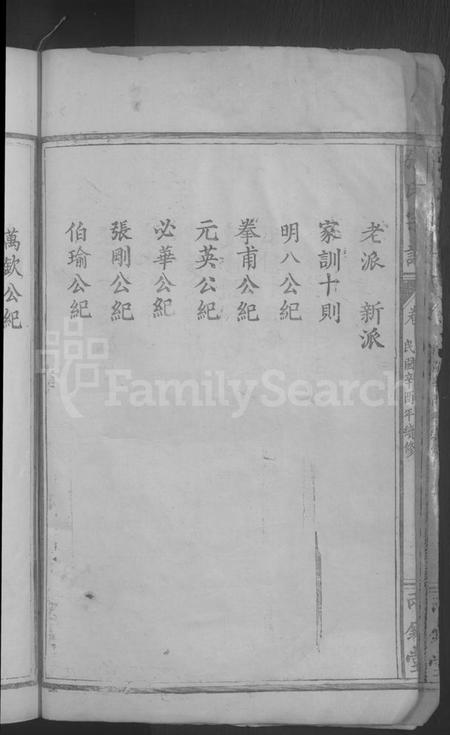 老派 新派
家訓十則
明八公紀
拳甫公紀
元英公紀
必華公紀
張剛公紀
伯瑜公紀
萬欽公紀
民國辛酉年續修
FamilySearch